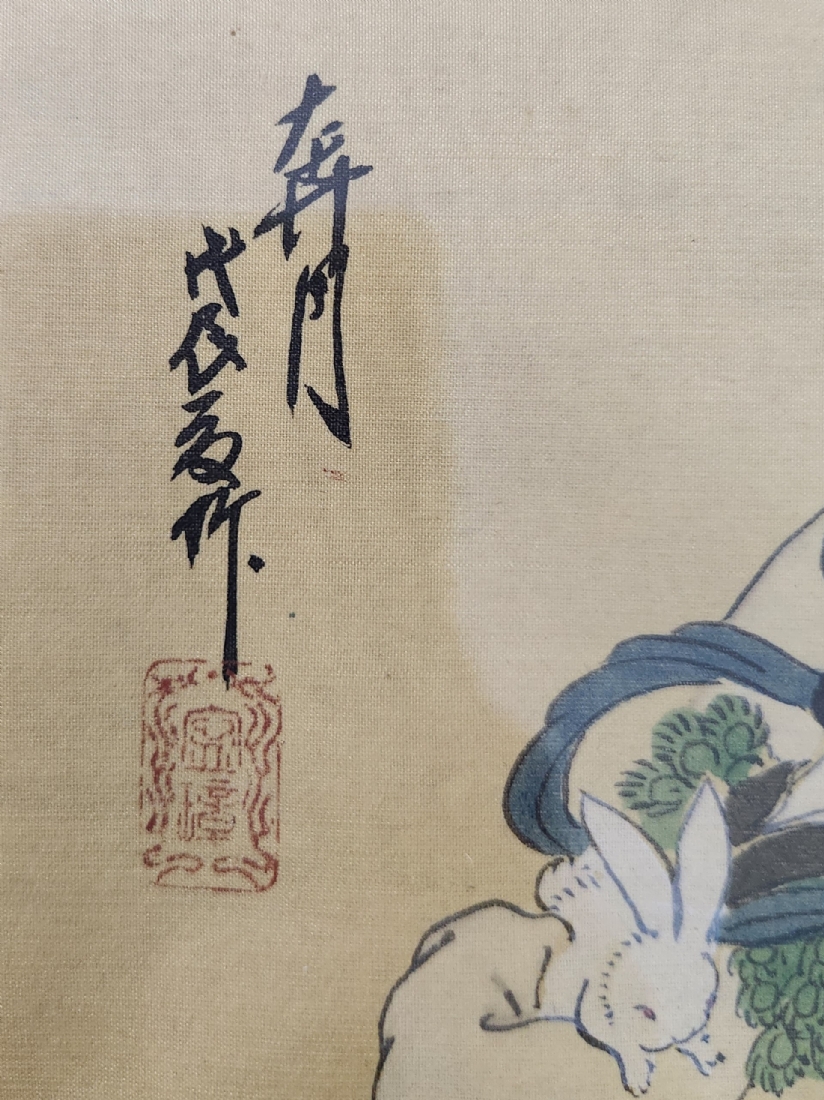 奔月
戊辰夏作